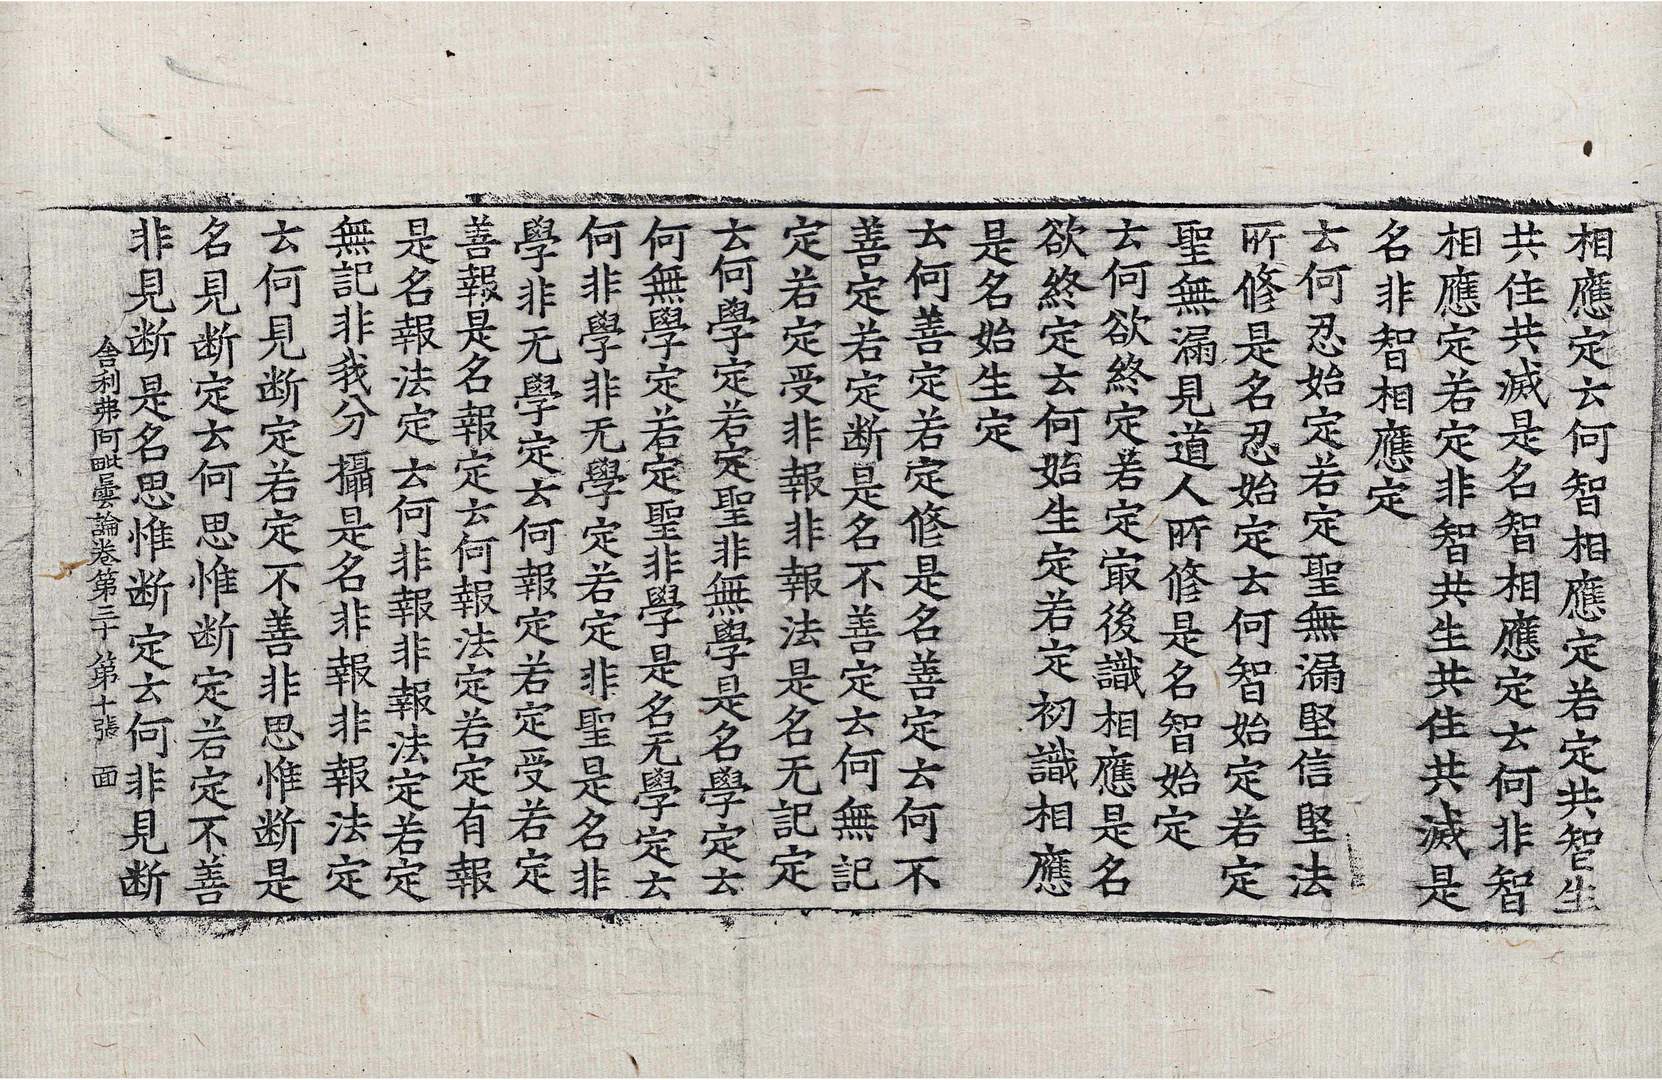 相應定云何智相應定若定共智生
共住共滅是名智相應定云何非智
相應定若定非智共生共住共滅是
名非智相應定
云何忍始定若定聖無漏堅信堅法
所修是名忍始定云何智始定若定
聖無漏見道人所修是名智始定
云何欲終定若定冣後識相應是名
欲終定云何始生定若定初識相應
是名始生定
云何善定若定修是名善定云何不
善定若定断是名不善定云何無記
定若定受非報非報法是名无記定
云何學定若定聖非無學是名學定云
何無學定若定聖非學是名无學定云
何非學非无學定若定非聖是名非
學非无學定云何報定若定受若定
善報是名報定云何報法定若定有報
是名報法定云何非報非報法定若定
無記非我分攝是名非報非報法定
云何見断定若定不善非思惟断是
名見断定云何思惟断定若定不善
非見断是名思惟断定云何非見断
舍利弗阿毗曇論卷第三十 第十張 面